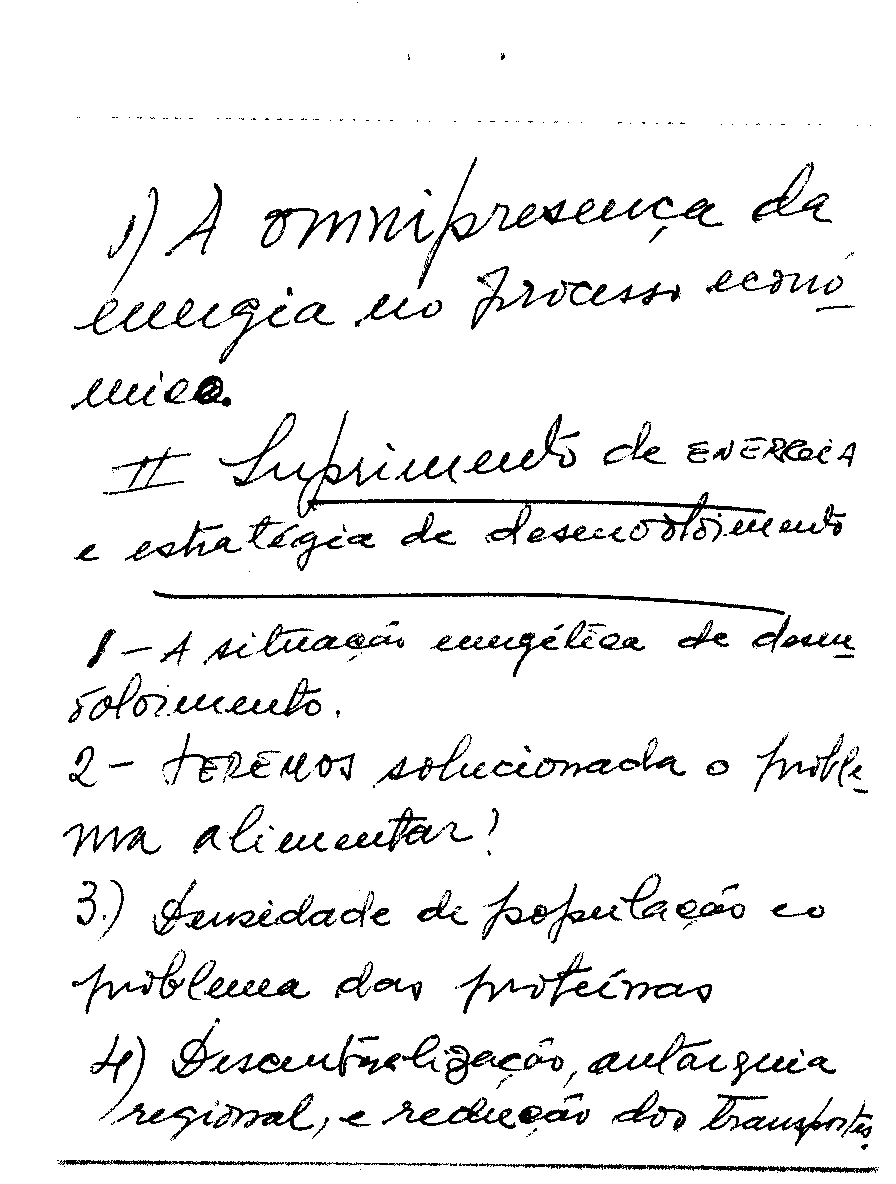 1) A omnipresença da
energia no processo econô-
mico.
II Suprimento de ENERGIA
e estratégia de desenvolvimento
1 - A situação energética de desen-
volvimento.
2 - TEREMOS solucionada o proble-
ma alimentar?
3.) Densidade de população e o
problema das proteínas
4) Descentralização, autarquia
regional, e redução dos transportes.